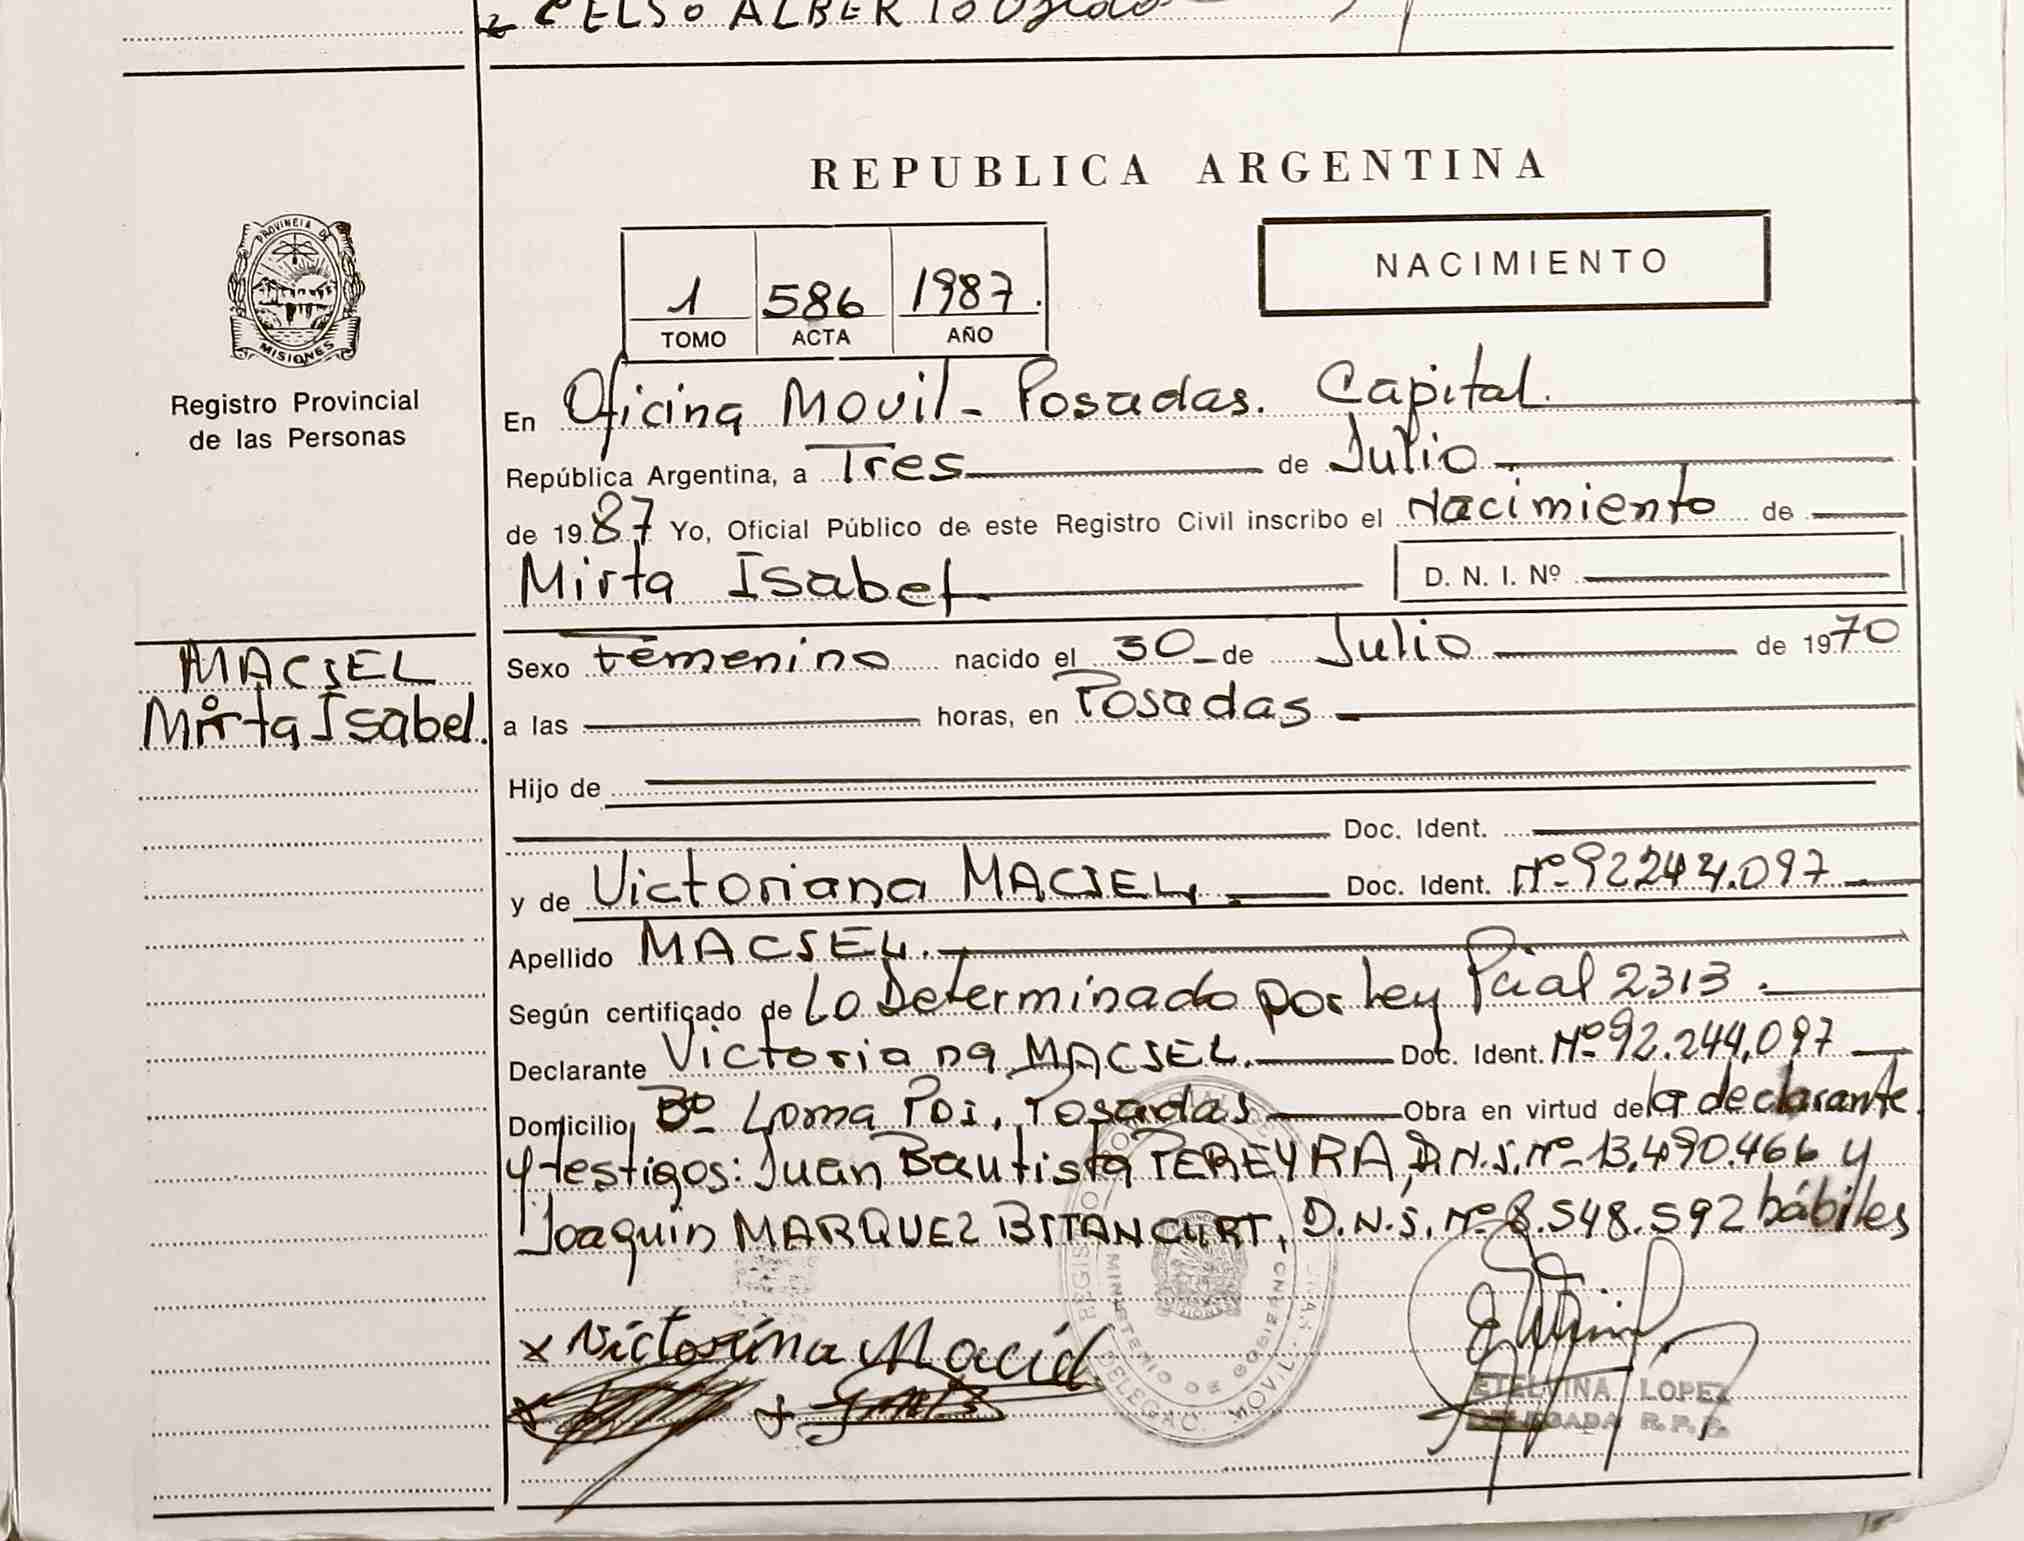 CELSO ALBERTO
REPUBLICA ARGENTINA
PROVINCIA DE
MISIONES
Registro Provincial
de las Personas
NACIMIENTO
1 586 1987.
TOMO ACTA AÑO
En Oficina Movil - Posadas. Capital.
República Argentina, a Tres de Julio
de 1987 Yo, Oficial Público de este Registro Civil inscribo el Nacimiento de
Mirta Isabel D. N. I. Nº
MACIEL
Mirta Isabel.
Sexo Femenino nacido el 30 de Julio de 1970
a las horas, en Posadas
Hijo de
Doc. Ident.
y de Victoriana MACIEL, Doc. Ident. Nº 92244.097
Apellido MACIEL.
Según certificado de Lo Determinado por Ley Pcial 2313.
Declarante Victoriana MACIEL. Doc. Ident. Nº 92.244.097
Domicilio Bº Loma Poi, Posadas Obra en virtud de la declarante
y testigos: Juan Bautista PEREYRA, D.N.I. Nº 13.490.466 y
Joaquin MARQUEZ BITANCURT, D.N.I. Nº 8.548.592 hábiles
x Victorina Maciel
ETELVINA LOPEZ
DELEGADA R.P.P.